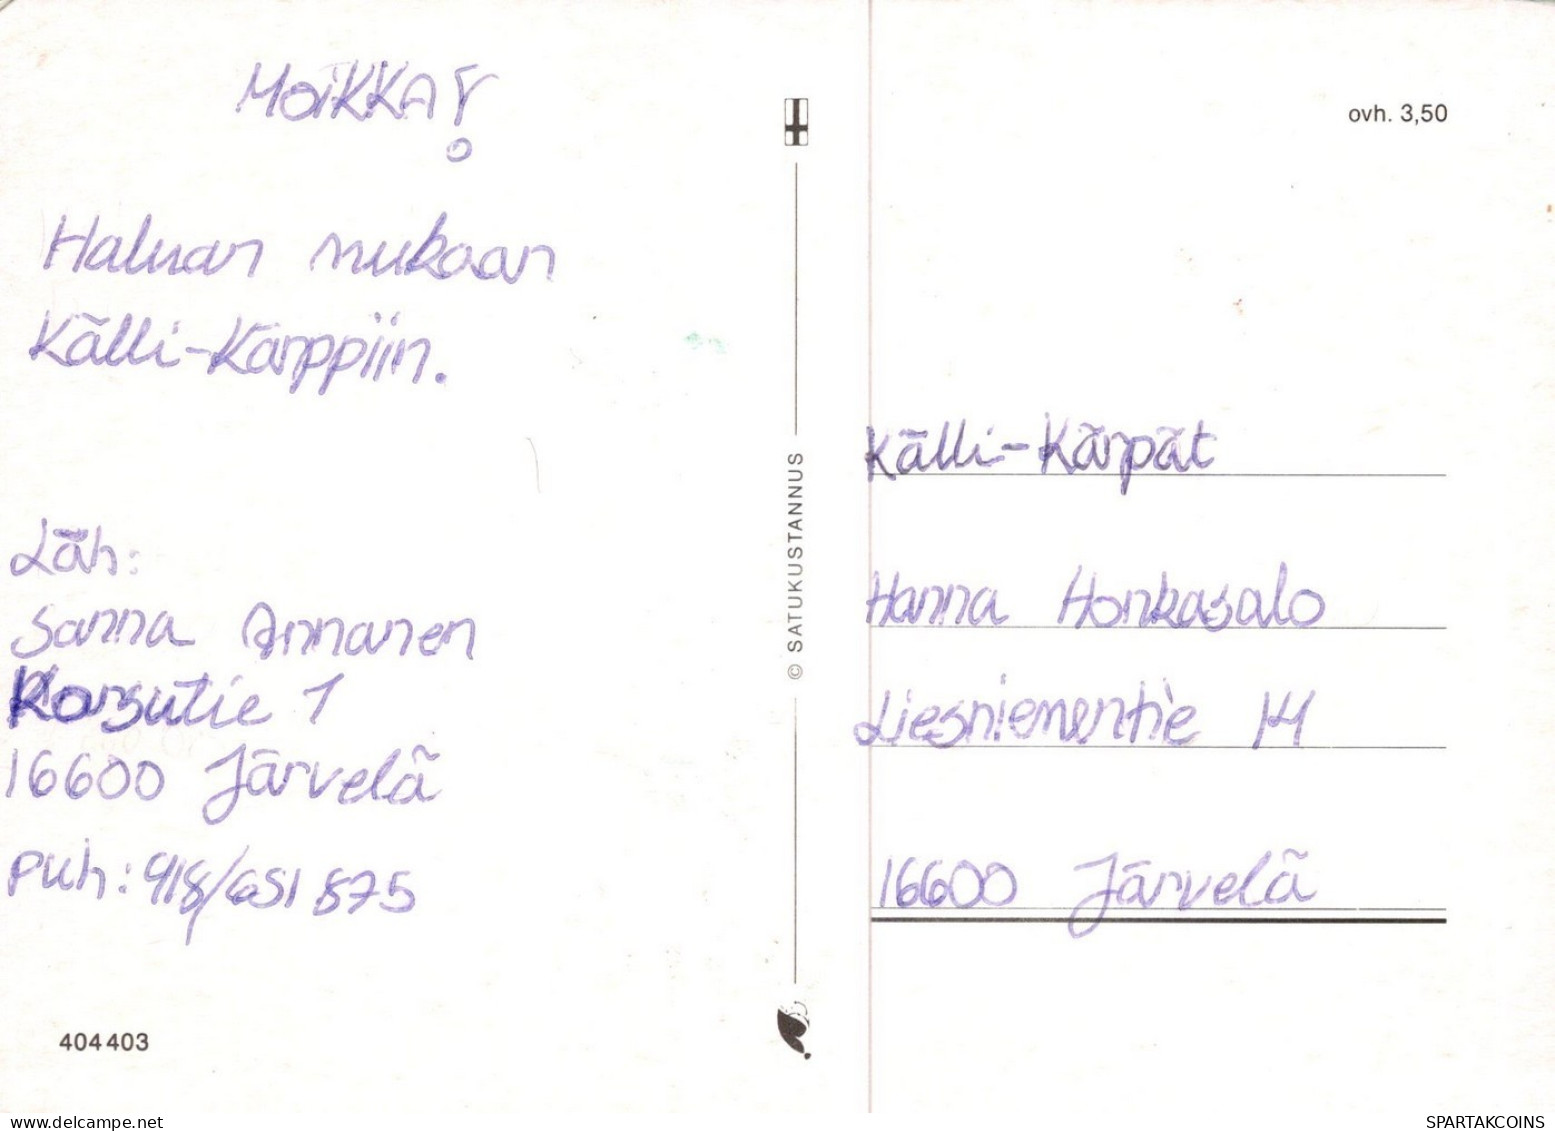 MOiKKA!
Haluan mukaan
Källi-Kärppiin.
Läh:
Sanna Annanen
Korsutie 1
16600 Järvelä
puh: 918/651 875
404403
© SATUKUSTANNUS
ovh. 3,50
Källi-Kärpät
Hanna Honkasalo
Liesniementie 14
16600 Järvelä
SPARTAKCOINS